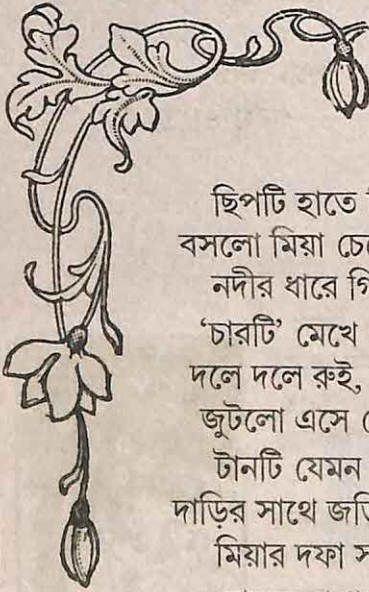 ছিপটি হাতে
বসলো মিয়া
নদীর ধারে
‘চারটি’ মেখে
দলে দলে রুই,
জুটলো এসে
টানটি যেমন
দাড়ির সাথে
মিয়ার দফা